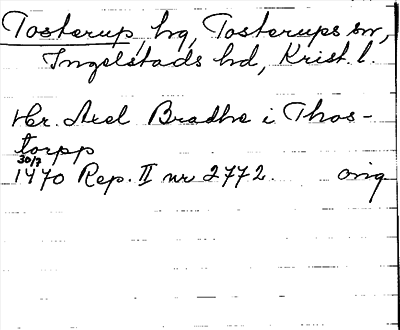 Tosterup, hg, Tosterups sn,
Ingelstads hd, Krist. l.
Hr. Axel Bradhe i Thos-
torpp
30/7
1470 Rep. II nr 2772. orig